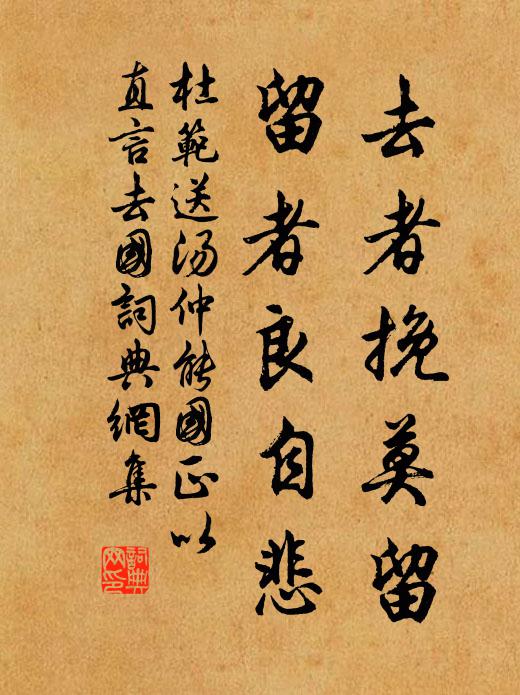 去者挽莫留
留者良自悲
杜範送汤仲能國正以
直言去國詞典網集
詞典網印